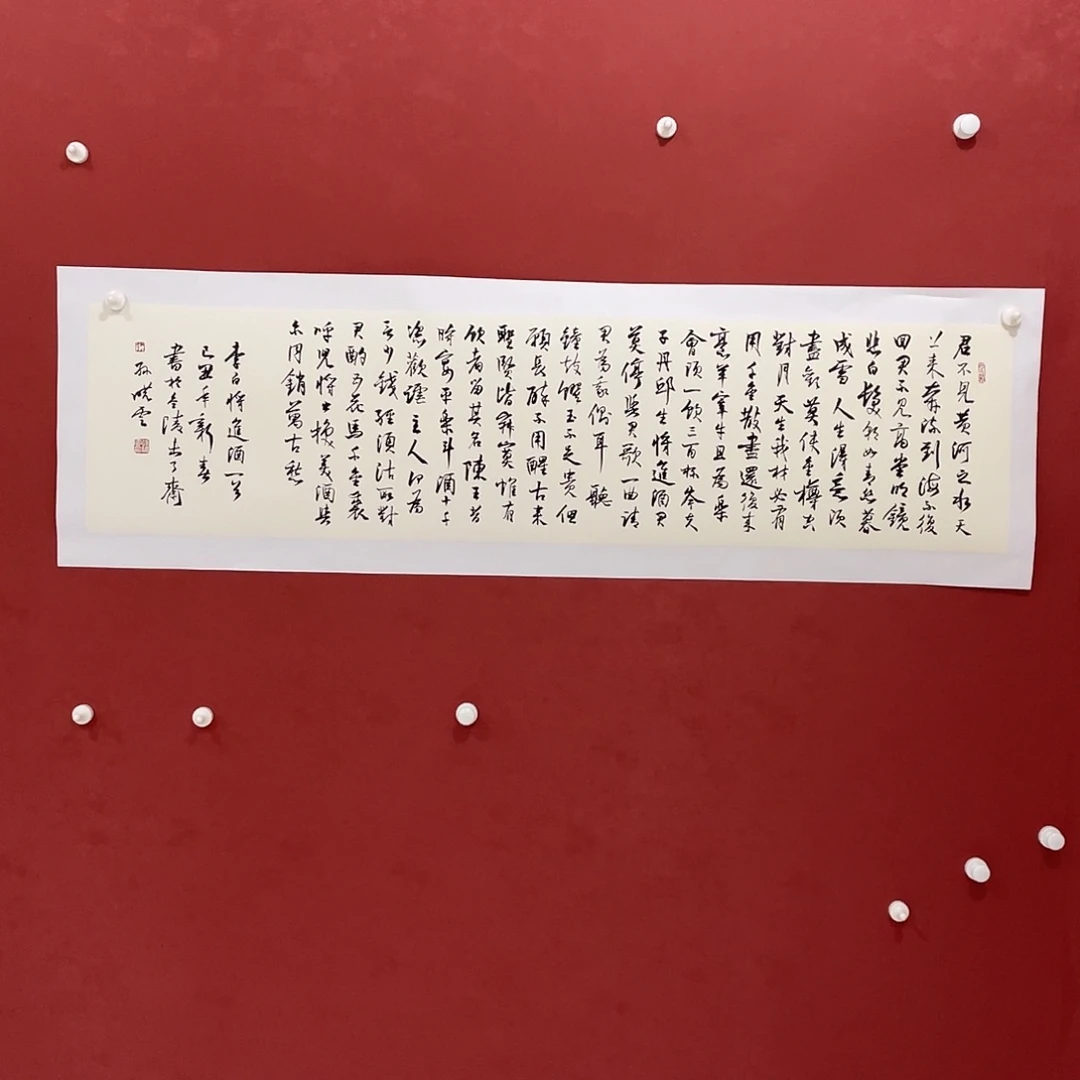 君不見黄河之水天
上来奔流到海不復
回君不見高堂明鏡
悲白髮朝如青丝暮
成雪人生得意須
盡歡莫使金樽空
對月天生我材必有
用千金散盡還復来
烹羊宰牛且為樂
會須一飲三百杯岑夫
子丹邱生将進酒君
莫停與君歌一曲請
君為我傾耳聽
鐘鼓饌玉不足貴但
願長醉不用醒古来
聖賢皆寂寞惟有
飲者留其名陳王昔
時宴平樂斗酒十千
恣歡謔主人何為
言少錢徑須沽取對
君酌五花馬千金裘
呼兒将出换美酒與
尔同銷萬古愁
李白将進酒一首
己丑年新春
書於金陵齋
孫曉雲